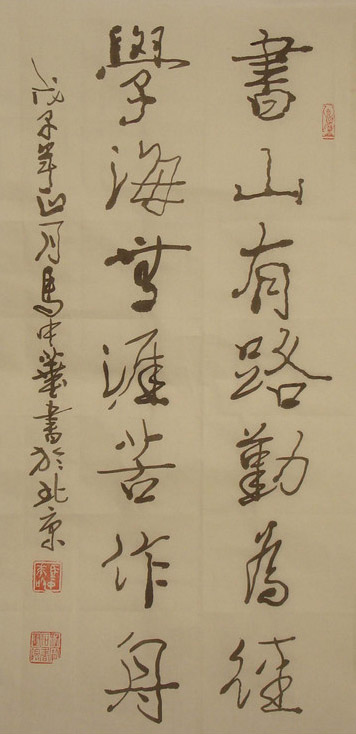 書山有路勤為徑
學海無涯苦作舟
戊子年正月馬中華書於北京